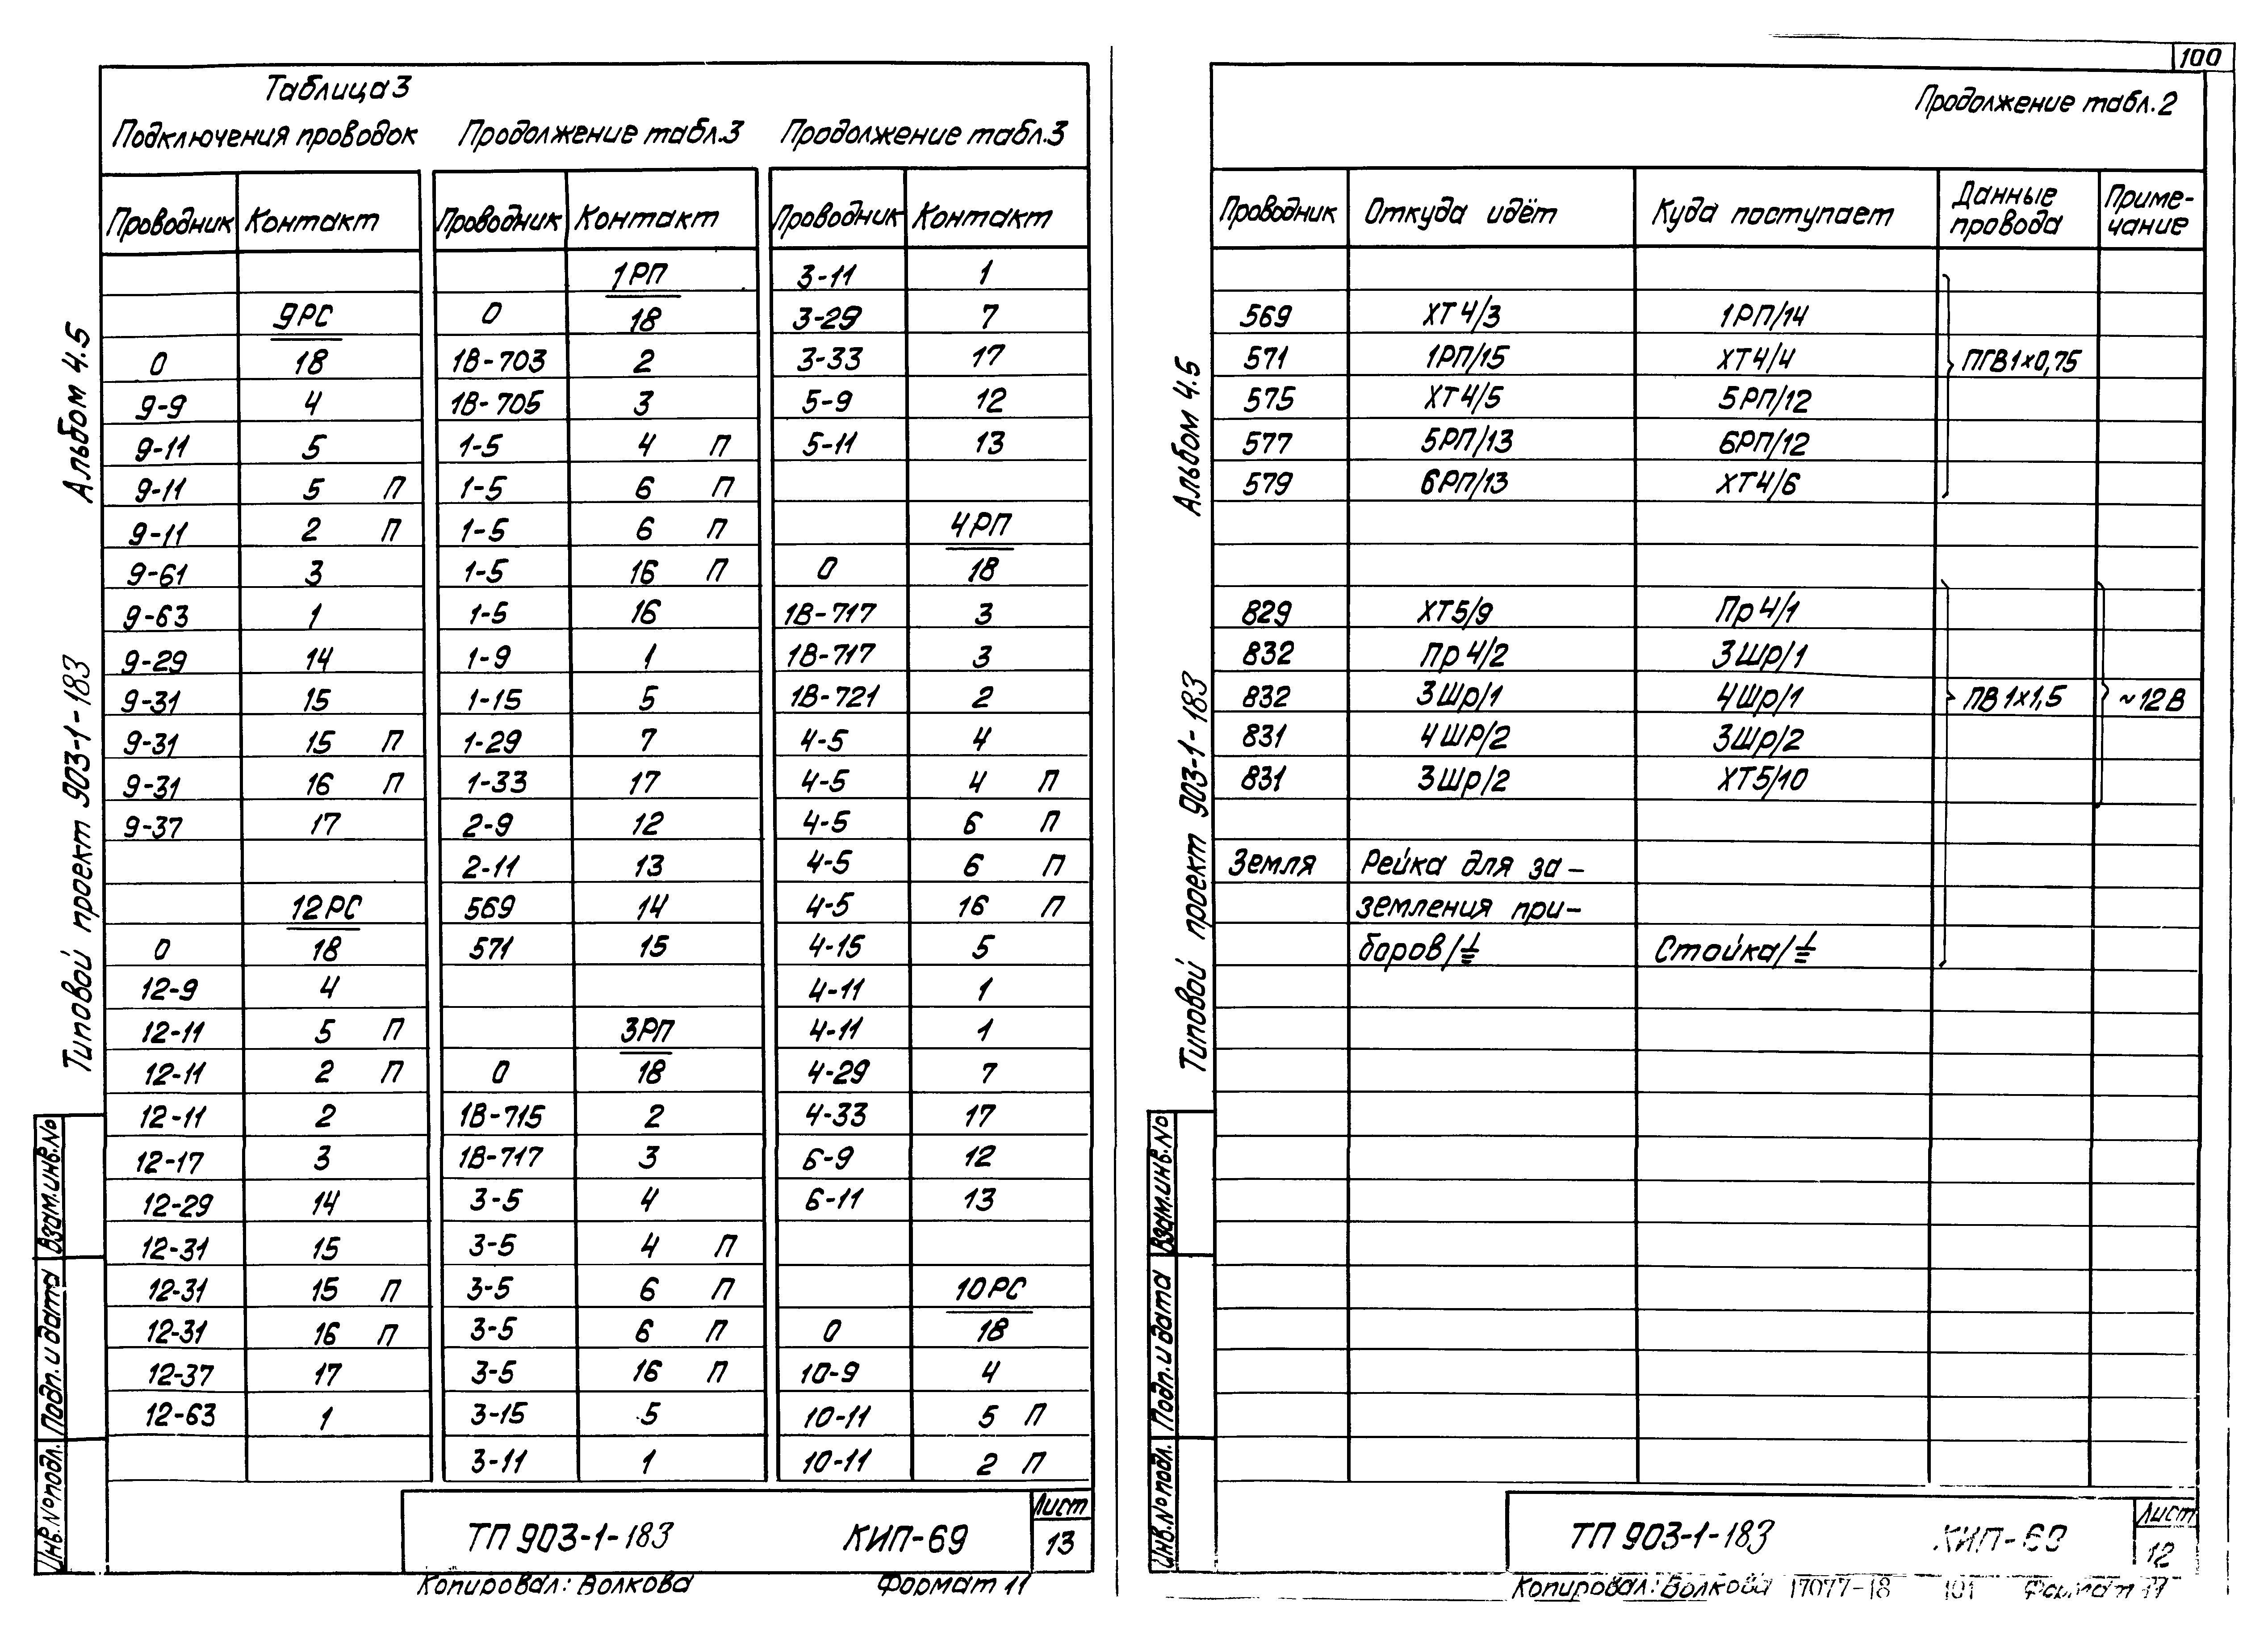 Таблица 3
Подключения проводок Продолжение табл.3 Продолжение табл.3
Проводник Контакт Проводник Контакт Проводник Контакт
1РП 3-11 1
9РС 0 18 3-29 7
0 18 1В-703 2 3-33 17
9-9 4 1В-705 3 5-9 12
9-11 5 1-5 4 П 5-11 13
9-11 5 П 1-5 6 П
9-11 2 П 1-5 6 П 4РП
9-61 3 1-5 16 П 0 18
9-63 1 1-5 16 1В-717 3
9-29 14 1-9 1 1В-717 3
9-31 15 1-15 5 1В-721 2
9-31 15 П 1-29 7 4-5 4
9-31 16 П 1-33 17 4-5 4 П
9-37 17 2-9 12 4-5 6 П
2-11 13 4-5 6 П
12РС 569 14 4-5 16 П
0 18 571 15 4-15 5
12-9 4 4-11 1
12-11 5 П 3РП 4-11 1
12-11 2 П 0 18 4-29 7
12-11 2 1В-715 2 4-33 17
12-17 3 1В-717 3 6-9 12
12-29 14 3-5 4 6-11 13
12-31 15 3-5 4 П
12-31 15 П 3-5 6 П 10РС
12-31 16 П 3-5 6 П 0 18
12-37 17 3-5 16 П 10-9 4
12-63 1 3-15 5 10-11 5 П
3-11 1 10-11 2 П
ТП 903-1-183 КИП-69 Лист 13
Копировал: Волкова Формат 11
Альбом 4.5
Типовой проект 903-1-183
Взам.инв.№
Подп. и дата
Инв.№подл.
100
Продолжение табл.2
Проводник Откуда идёт Куда поступает Данные провода Приме-
чание
569 ХТ4/3 1РП/14
571 1РП/15 ХТ4/4 ПГВ1х0,75
575 ХТ4/5 5РП/12
577 5РП/13 6РП/12
579 6РП/13 ХТ4/6
829 ХТ5/9 Пр4/1
832 Пр4/2 3Шр/1
832 3Шр/1 4Шр/1 ПВ1х1,5 ~12В
831 4ШР/2 3Шр/2
831 3Шр/2 ХТ5/10
Земля Рейка для за-
земления при-
боров/⏚ Стойка/⏚
ТП 903-1-183 КИП-69 Лист 12
Копировал: Волкова 17077-18 101 Формат 11
Альбом 4.5
Типовой проект 903-1-183
Взам.инв.№
Подп. и дата
Инв.№подл.